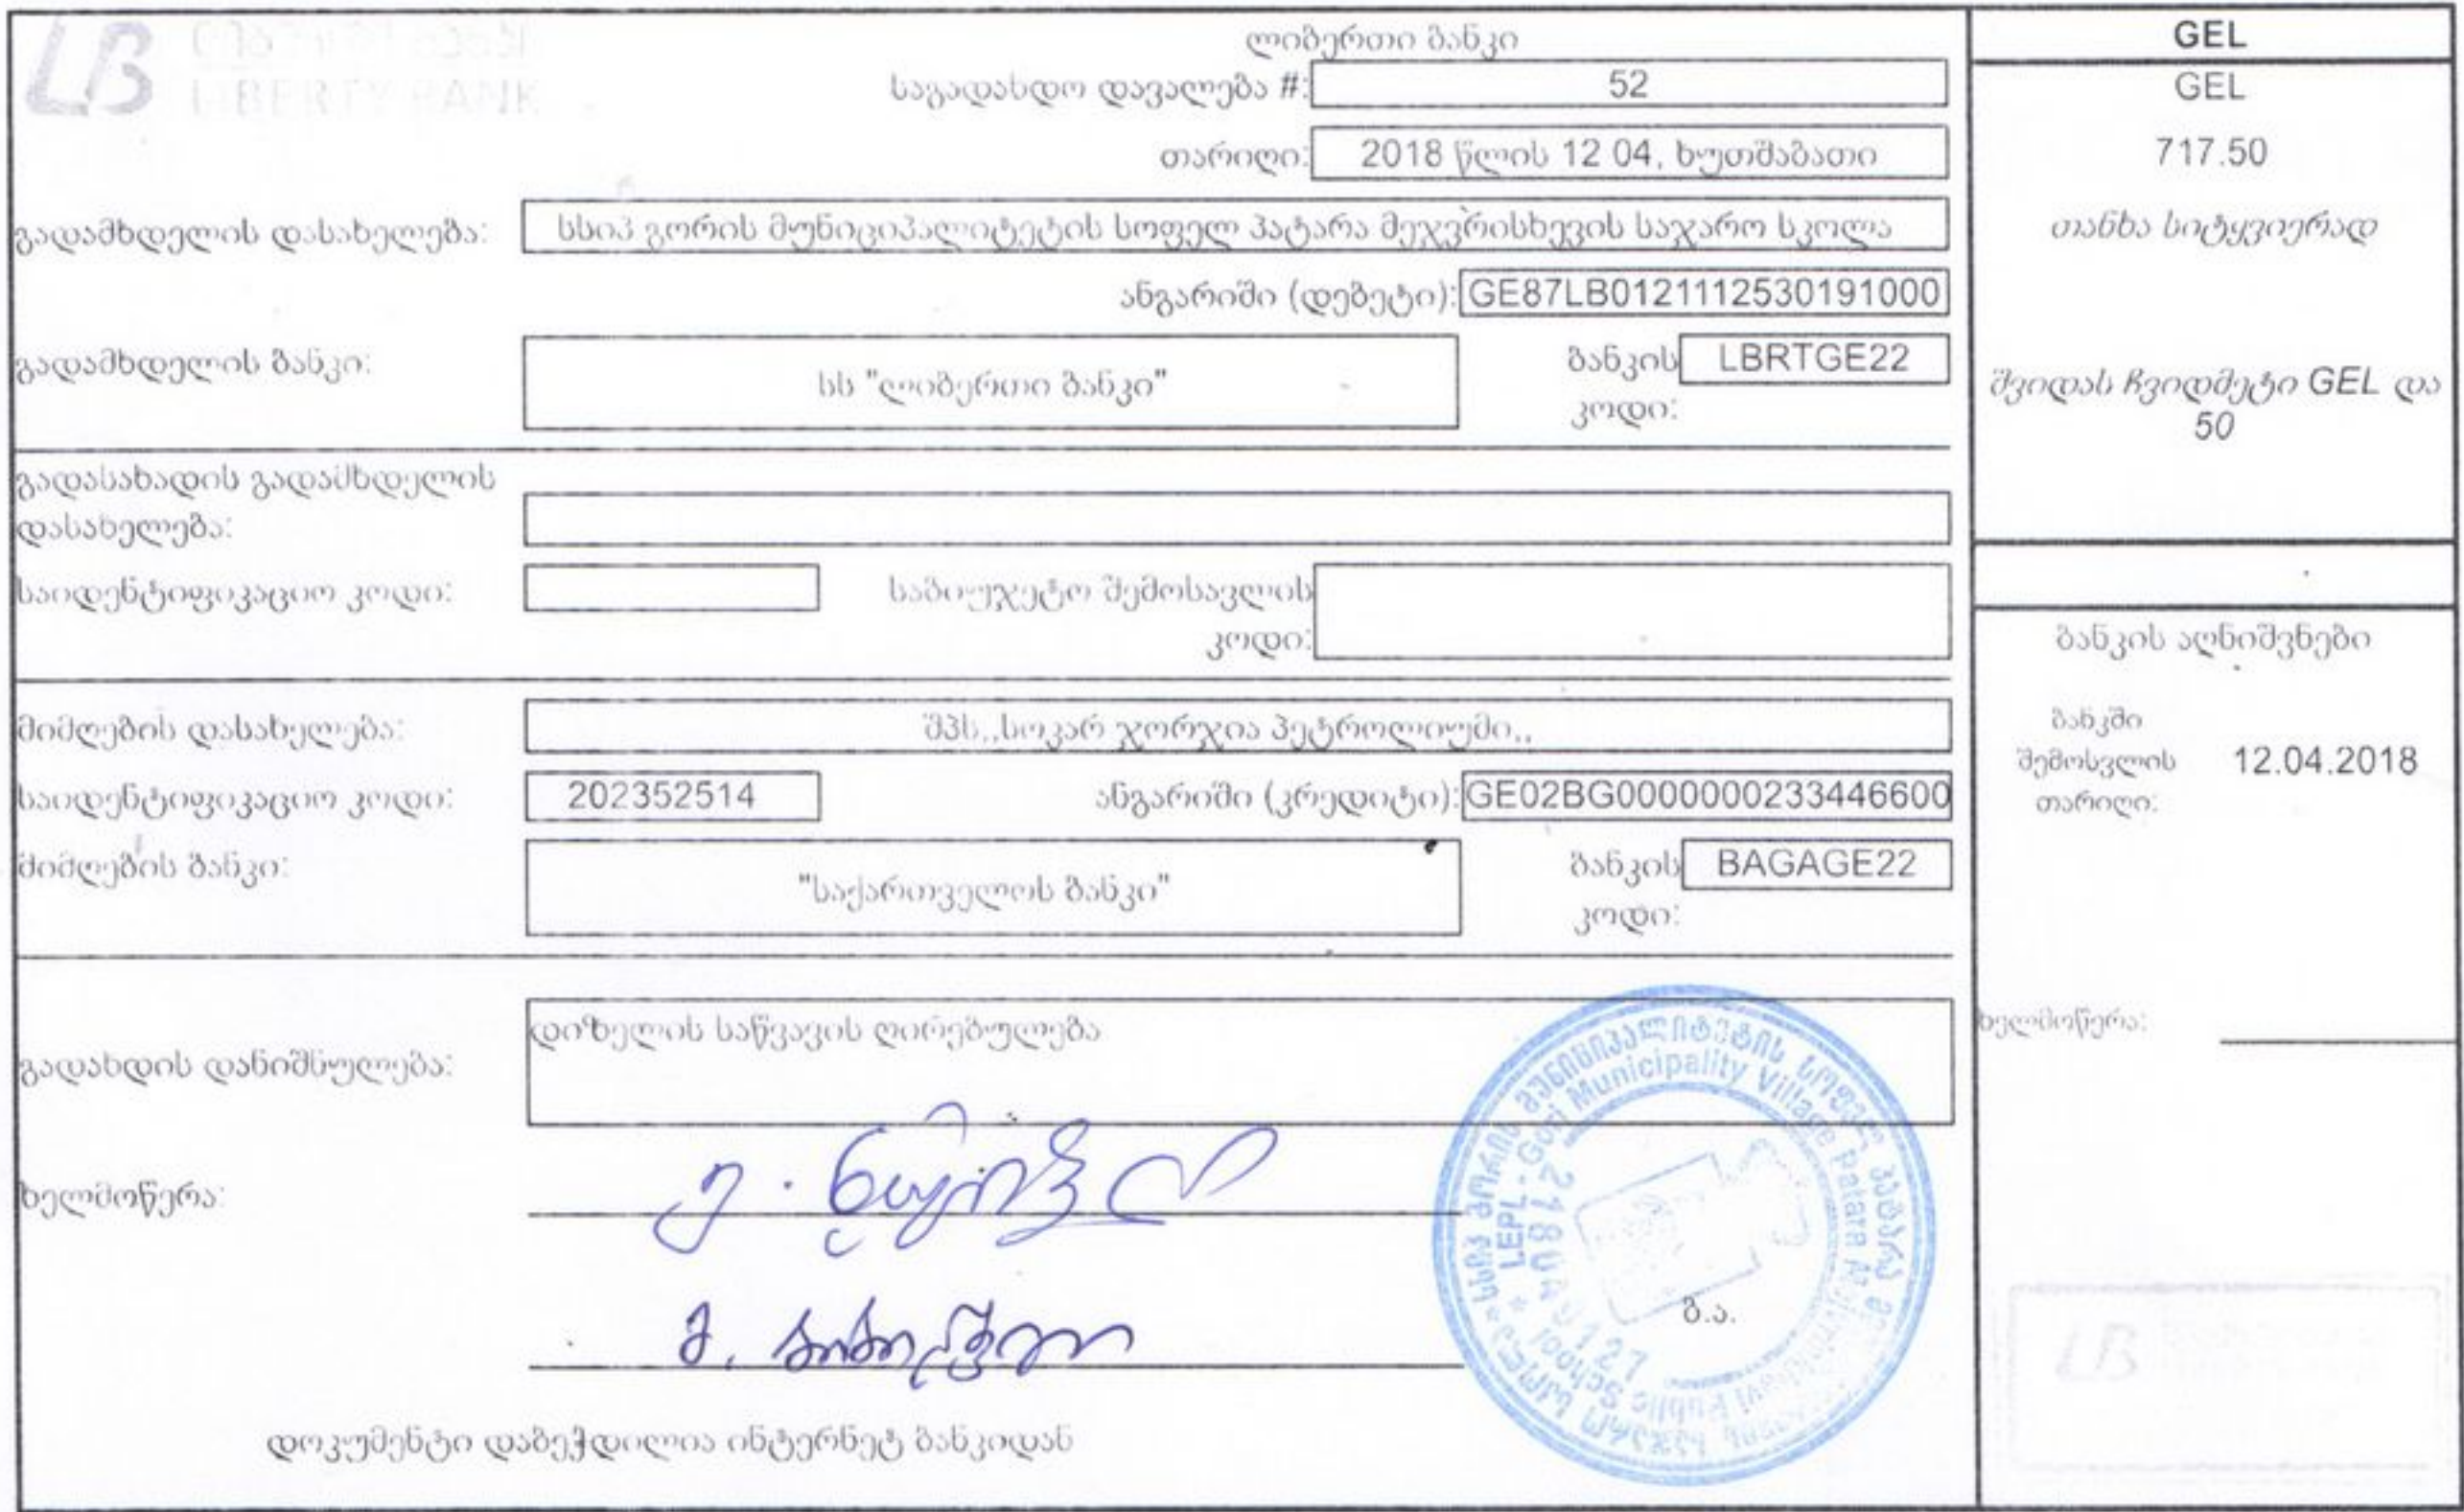 LB ლიბერთი ბანკი
LIBERTY BANK
ლიბერთი ბანკი
საგადახდო დავალება #: 52
თარიღი: 2018 წლის 12 04, ხუთშაბათი
გადამხდელის დასახელება: სსიპ გორის მუნიციპალიტეტის სოფელ პატარა მეჯვრისხევის საჯარო სკოლა
ანგარიში (დებეტი): GE87LB0121112530191000
გადამხდელის ბანკი: სს "ლიბერთი ბანკი" ბანკის კოდი: LBRTGE22
გადასახადის გადამხდელის
დასახელება:
საიდენტიფიკაციო კოდი: საბიუჯეტო შემოსავლის
კოდი:
მიმღების დასახელება: შპს,,სოკარ ჯორჯია პეტროლიუმი,,
საიდენტიფიკაციო კოდი: 202352514 ანგარიში (კრედიტი): GE02BG0000000233446600
მიმღების ბანკი: "საქართველოს ბანკი" ბანკის კოდი: BAGAGE22
გადახდის დანიშნულება: დიზელის საწვავის ღირებულება
ხელმოწერა:
ბ.ა.
სსიპ გორის მუნიციპალიტეტის სოფელ პატარა საჯარო სკოლა
LEPL - Gori Municipality Village Patara Public School
დოკუმენტი დაბეჭდილია ინტერნეტ ბანკიდან
GEL
GEL
717.50
თანხა სიტყვიერად
შვიდას ჩვიდმეტი GEL და
50
ბანკის აღნიშვნები
ბანკში
შემოსვლის 12.04.2018
თარიღი:
ხელმოწერა:
LB